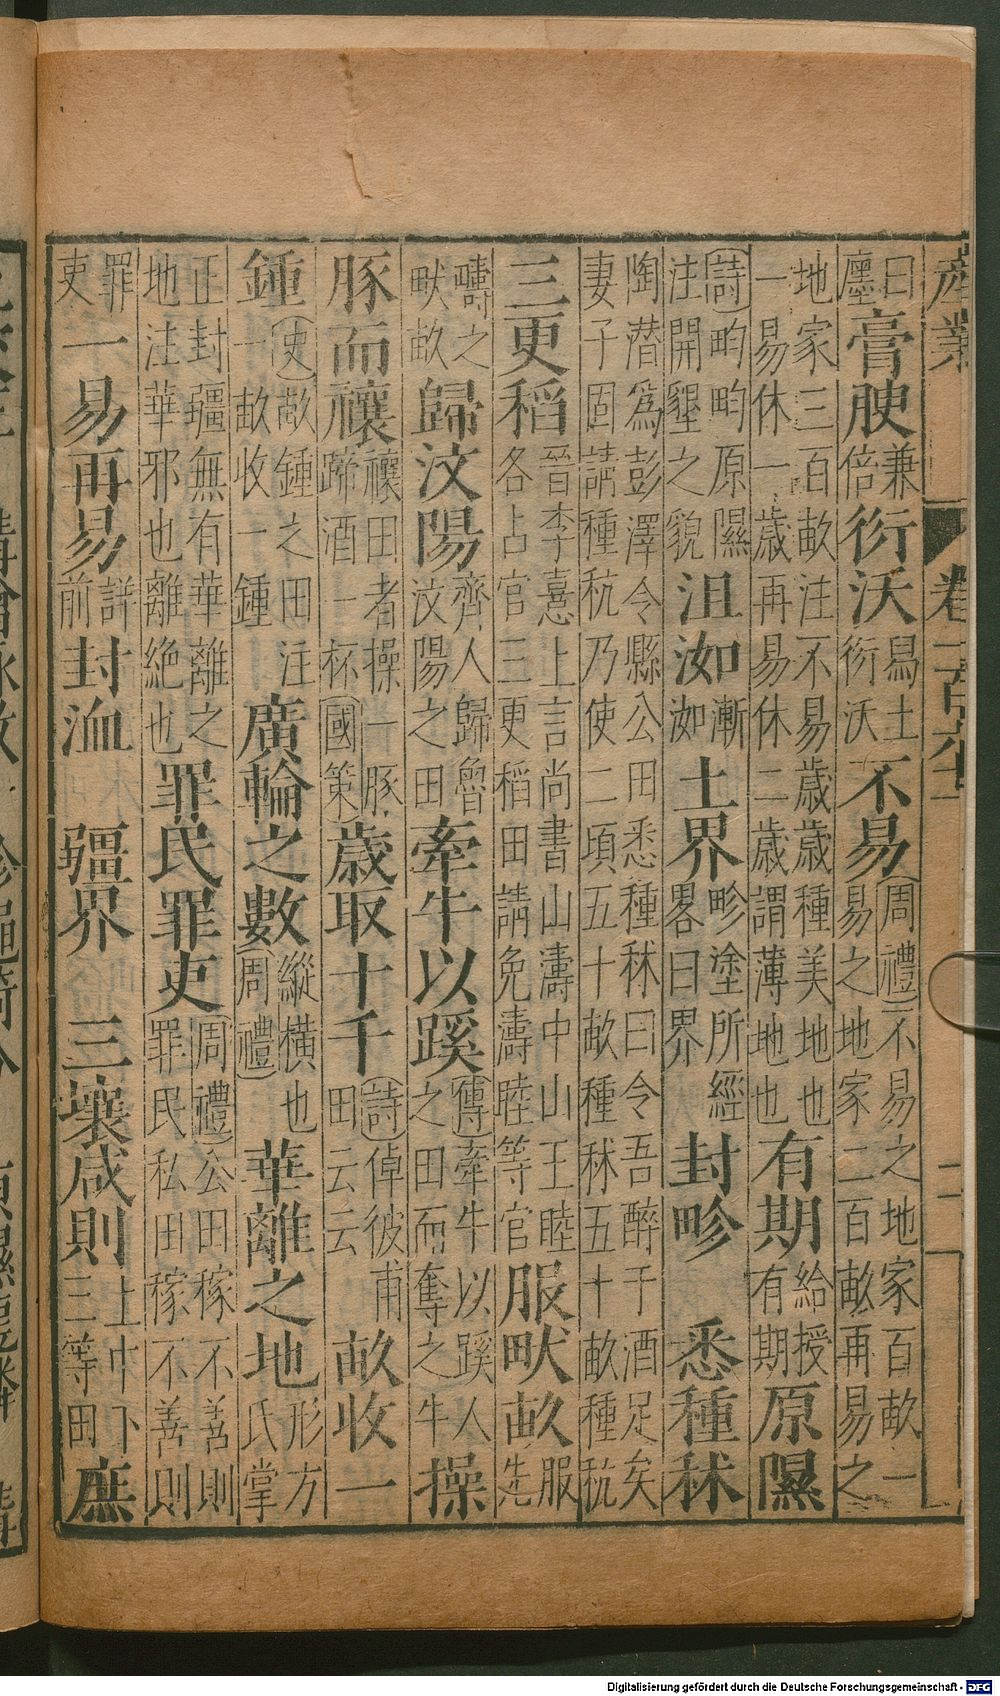 産業 卷 二
曰廛膏腴兼倍衍沃舄土衍沃不易(周禮)不易之地家百畝一易之地家二百畝再易之
地家三百畝注不易歳歳種美地也一易休一歳再易休二歳謂薄地也有期給授有期原隰
(詩)畇畇原隰注開墾之貌沮洳漸洳土界畛塗所經畧曰界封畛 悉種秫
陶潛爲彭澤令縣公田悉種秫曰令吾醉于酒足矣妻子固請種秔乃使二項五十畝種秫五十畝種秔
三更稻晉李憙上言尚書山濤中山王睦各占官三更稻田請免濤睦等官服畎畝服先
疇之畎畝歸汶陽齊人歸魯汶陽之田牽牛以蹊(傳)牽牛以蹊人之田而奪之牛操
豚而禳禳田者操一豚蹄酒一杯(國策)歳取十千(詩)倬彼甫田云云畝收一
鍾(史)畝鍾之田注一畝收一鍾廣輪之數縱横也(周禮)華離之地形方氏掌
正封疆無有華離之地注華邪也離絶也罪民罪吏(周禮)公田稼不善則罪民私田稼不善則
罪吏一易再易詳前封洫 疆界 三壤咸則上中下三等田廡
Digitalisierung gefördert durch die Deutsche Forschungsgemeinschaft - DFG